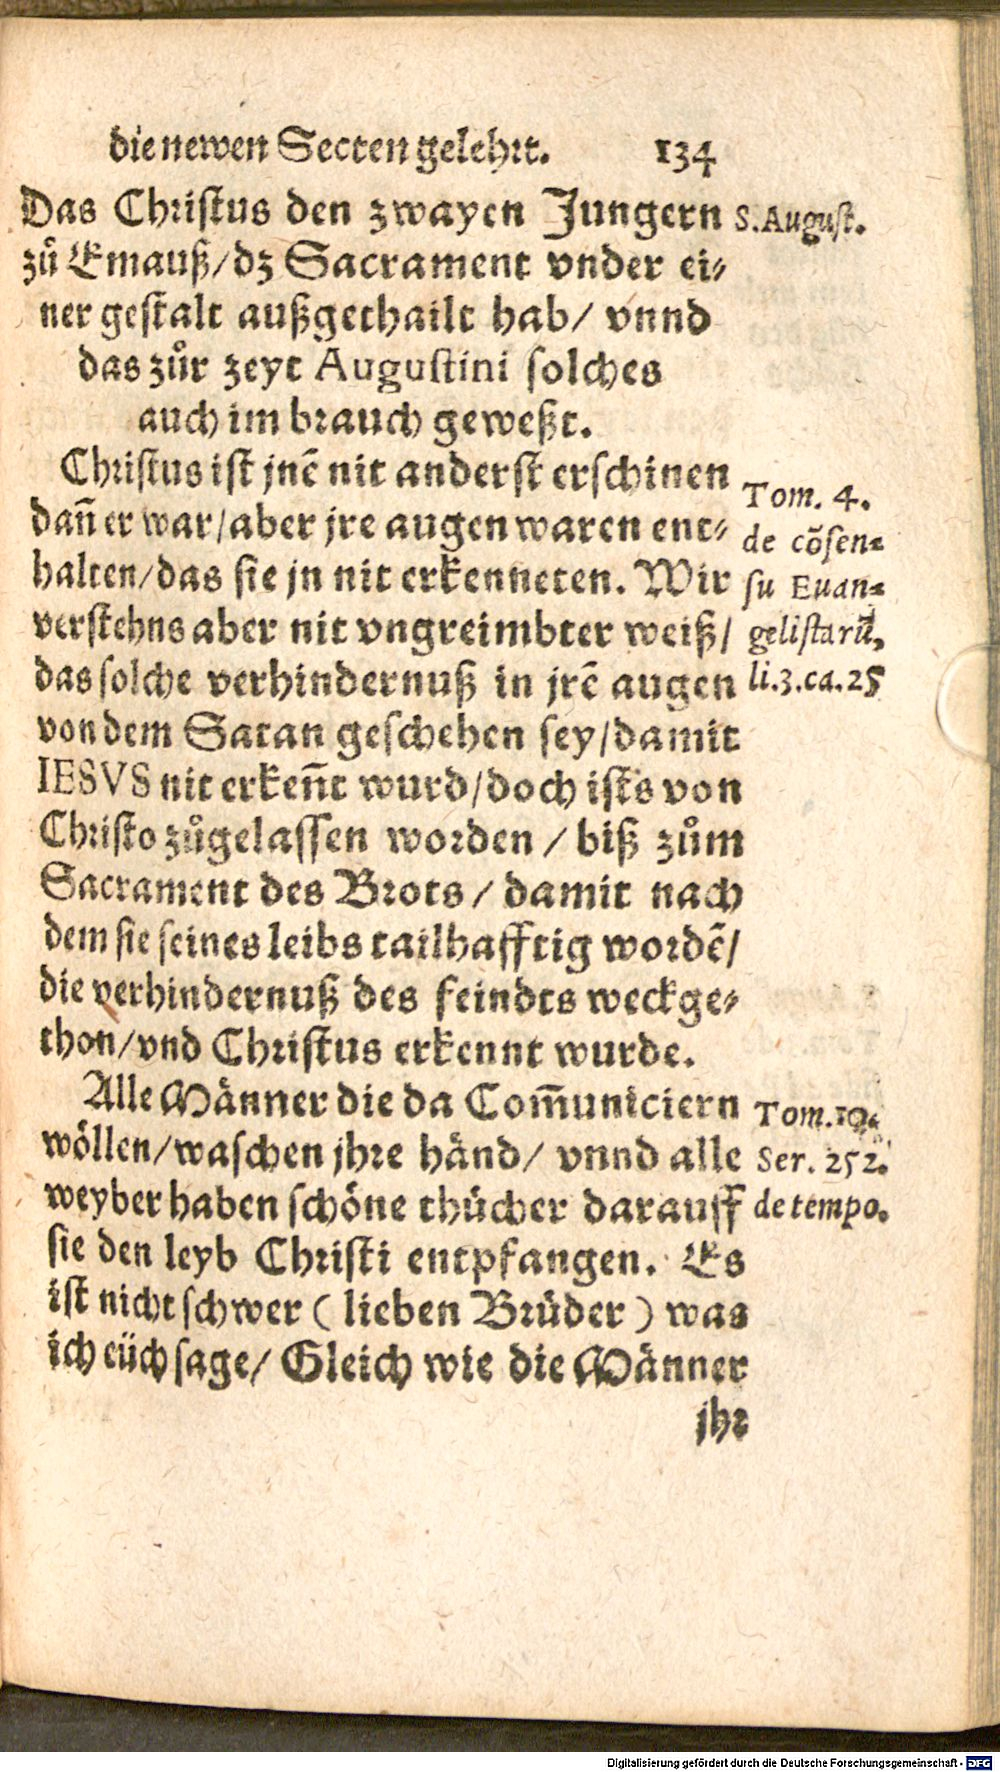 die newen Secten gelehrt. 134
Das Christus den zwayen Jungern
zů Emauß/dz Sacrament vnder ei-
ner gestalt außgethailt hab/ vnnd
das zůr zeyt Augustini solches
auch im brauch geweßt.
S. August.
Christus ist jnē nit anderst erschinen
dañ er war/aber jre augen waren ent-
halten/das sie jn nit erkenneten. Wir
verstehns aber nit vngreimbter weiß/
das solche verhindernuß in jrē augen
von dem Satan geschehen sey/damit
IESVS nit erkeñt wurd/doch ists von
Christo zůgelassen worden / biß zům
Sacrament des Brots / damit nach
dem sie seines leibs tailhafftig wordē/
die verhindernuß des feindts weckge-
thon/vnd Christus erkennt wurde.
Tom. 4.
de cõsen-
su Euan-
gelistarũ,
li.3.ca.25
Alle Männer die da Com̃uniciern
wöllen/waschen jhre händ/ vnnd alle
weyber haben schöne thücher darauff
sie den leyb Christi entpfangen. Es
ist nicht schwer ( lieben Brüder ) was
ich eüch sage/ Gleich wie die Männer
Tom.10.
Ser. 252.
de tempo.
jhr
Digitalisierung gefördert durch die Deutsche Forschungsgemeinschaft - DFG